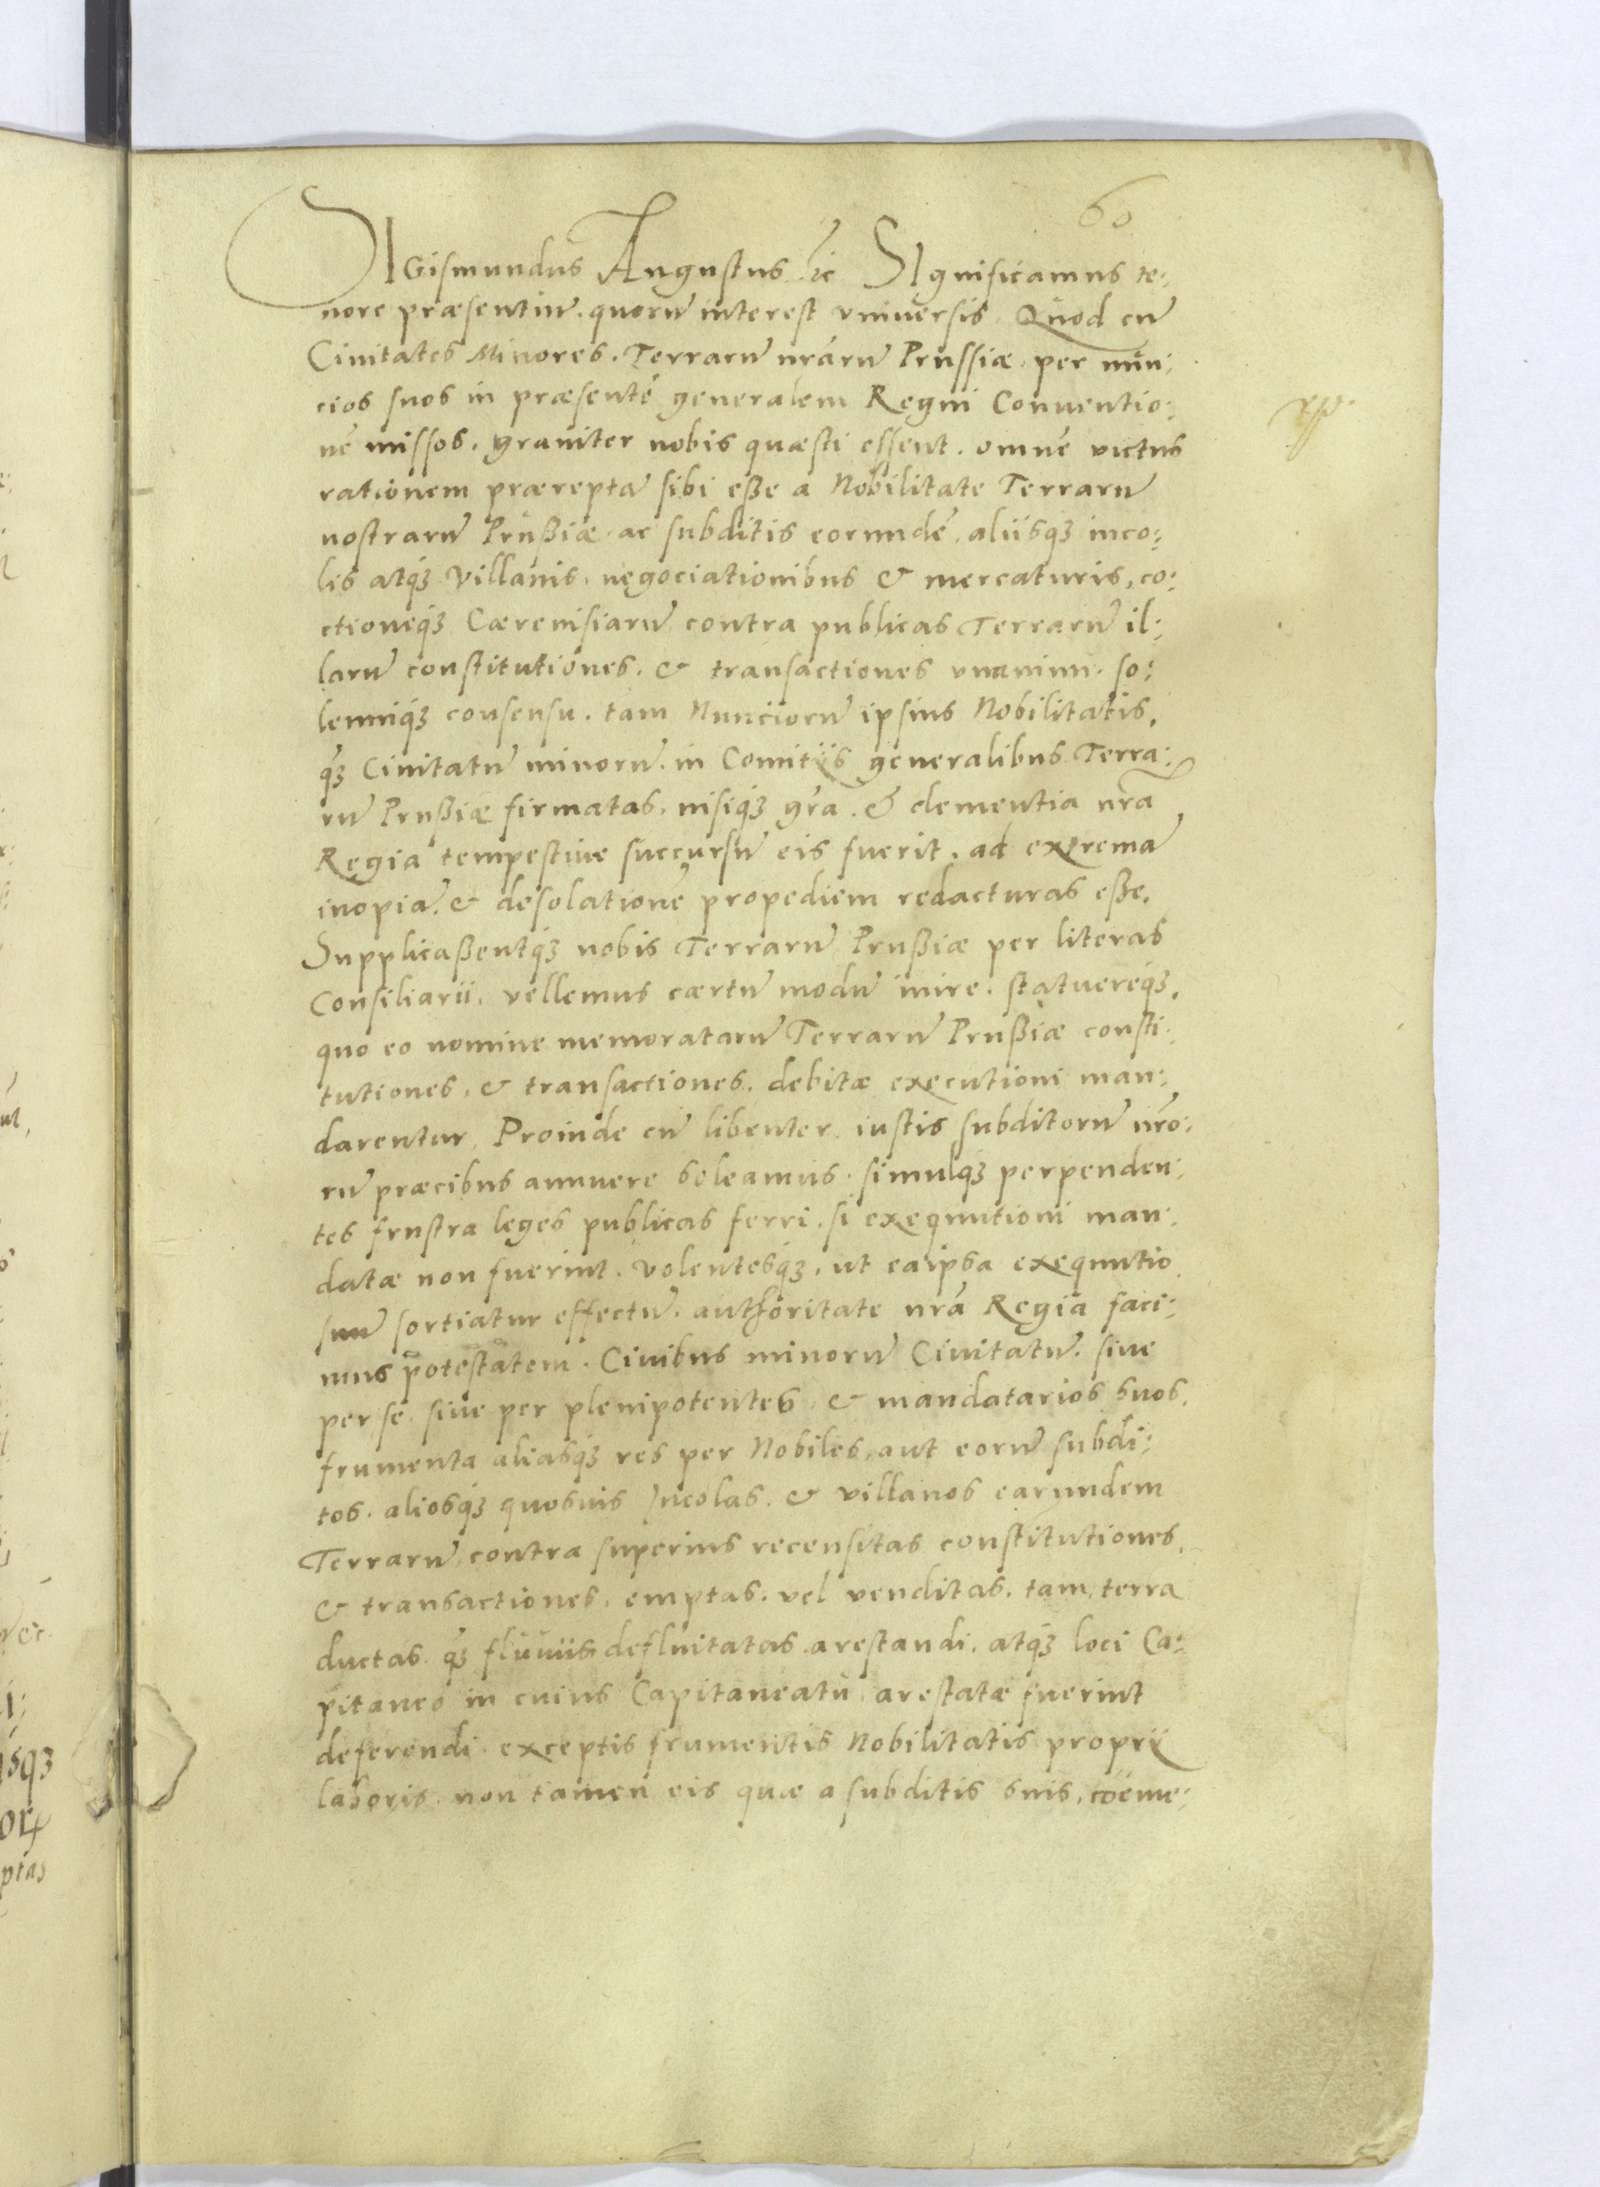 60
SIGismundus Augustus etc SIgnificamus te:
nore præsentiũ. quorũ interest vniuersis. Quod cũ
Ciuitates Minores. Terrarũ nr̃arũ Prussiæ per nun:
cios suos in præsentẽ generalem Regni Conuentio:
nẽ missos. grauiter nobis quæsti essent. omnẽ victus
rationem præreptã sibi eße a Nobilitate Terrarũ
nostrarũ Prußiæ. ac subditis eorundẽ. aliisq₃ inco:
lis atq₃ villanis. negociationibus & mercaturis, co:
ctioneq₃ Cæreuisiarũ contra publicas Terrarũ il:
larũ constitutiones. & transactiones vnanimi. so:
lenniq₃ consensu. tam Nunciorũ ipsius Nobilitatis,
q₃ Ciuitatũ minorũ. in Comitijs generalibus Terra:
rũ Prußiæ firmatas. nisiq₃ gr̃a. & clementia nr̃a
Regia tempestiue succursũ eis fuerit. ad extremã
inopiã. & desolationẽ propediem redacturas eße.
Supplicaßentq₃ nobis Terrarũ Prußiæ per literas
Consiliarii. vellemus cærtũ modũ inire. statuereq₃.
quo eo nomine memoratarũ Terrarũ Prußiæ consti:
tutiones. & transactiones. debitæ executioni man:
darentur. Proinde cũ libenter iustis subditorũ nr̃o:
rũ præcibus annuere soleamus. simulq₃ perpenden:
tes frustra leges publicas ferri. si exequutioni man:
datæ non fuerint. volentesq₃. ut ea ipsa exequutio
suũ sortiatur effectũ. authoritate nr̃a Regia faci:
mus potestatem. Ciuibus minorũ Ciuitatũ. siue
per se. siue per plenipotentes & mandatarios suos.
frumenta aliasq₃ res per Nobiles, aut eorũ subdi:
tos. aliosq₃ quosuis Incolas. & villanos earundem
Terrarũ contra superius recensitas constitutiones.
& transactiones. emptas. vel venditas. tam terra
ductas. q₃ fluuiis defluitatas arestandi. atq₃ loci Ca:
pitaneo in cuius Capitaneatu arestatæ fuerint
deferendi. exceptis frumentis Nobilitatis proprij
laboris. non tamen eis quæ a subditis suis, coeme: